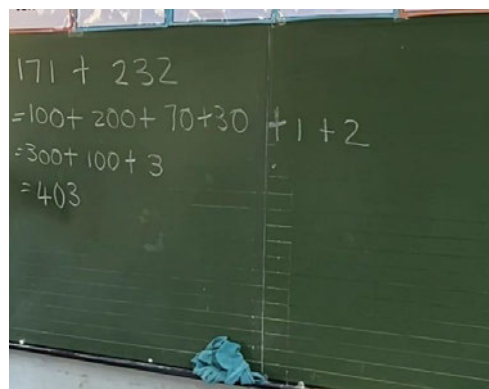 171 + 232
=100+ 200+ 70+30 +1+2
=300+100+ 3
=403